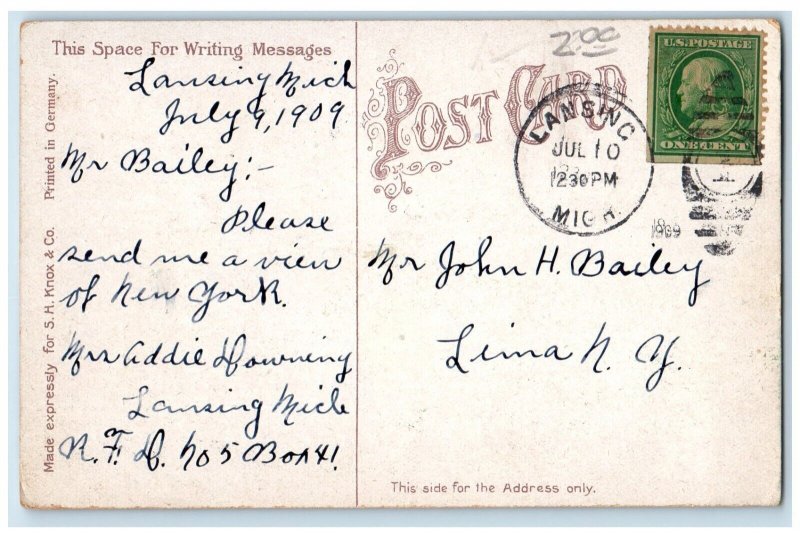 This Space For Writing Messages
Lansing Mich
July 9, 1909
Mr Bailey:-
Please
send me a view
of New York.
Mrs Addie Downing
Lansing Mich
R. F. D. No 5 Box 41.
Made expressly for S. H. Knox & Co. Printed in Germany.
2.00
POST CARD
U.S. POSTAGE
ONE CENT
LANSING
JUL 10
1230PM
MICH.
1909
Mr John H. Bailey
Lima N. Y.
This side for the Address only.